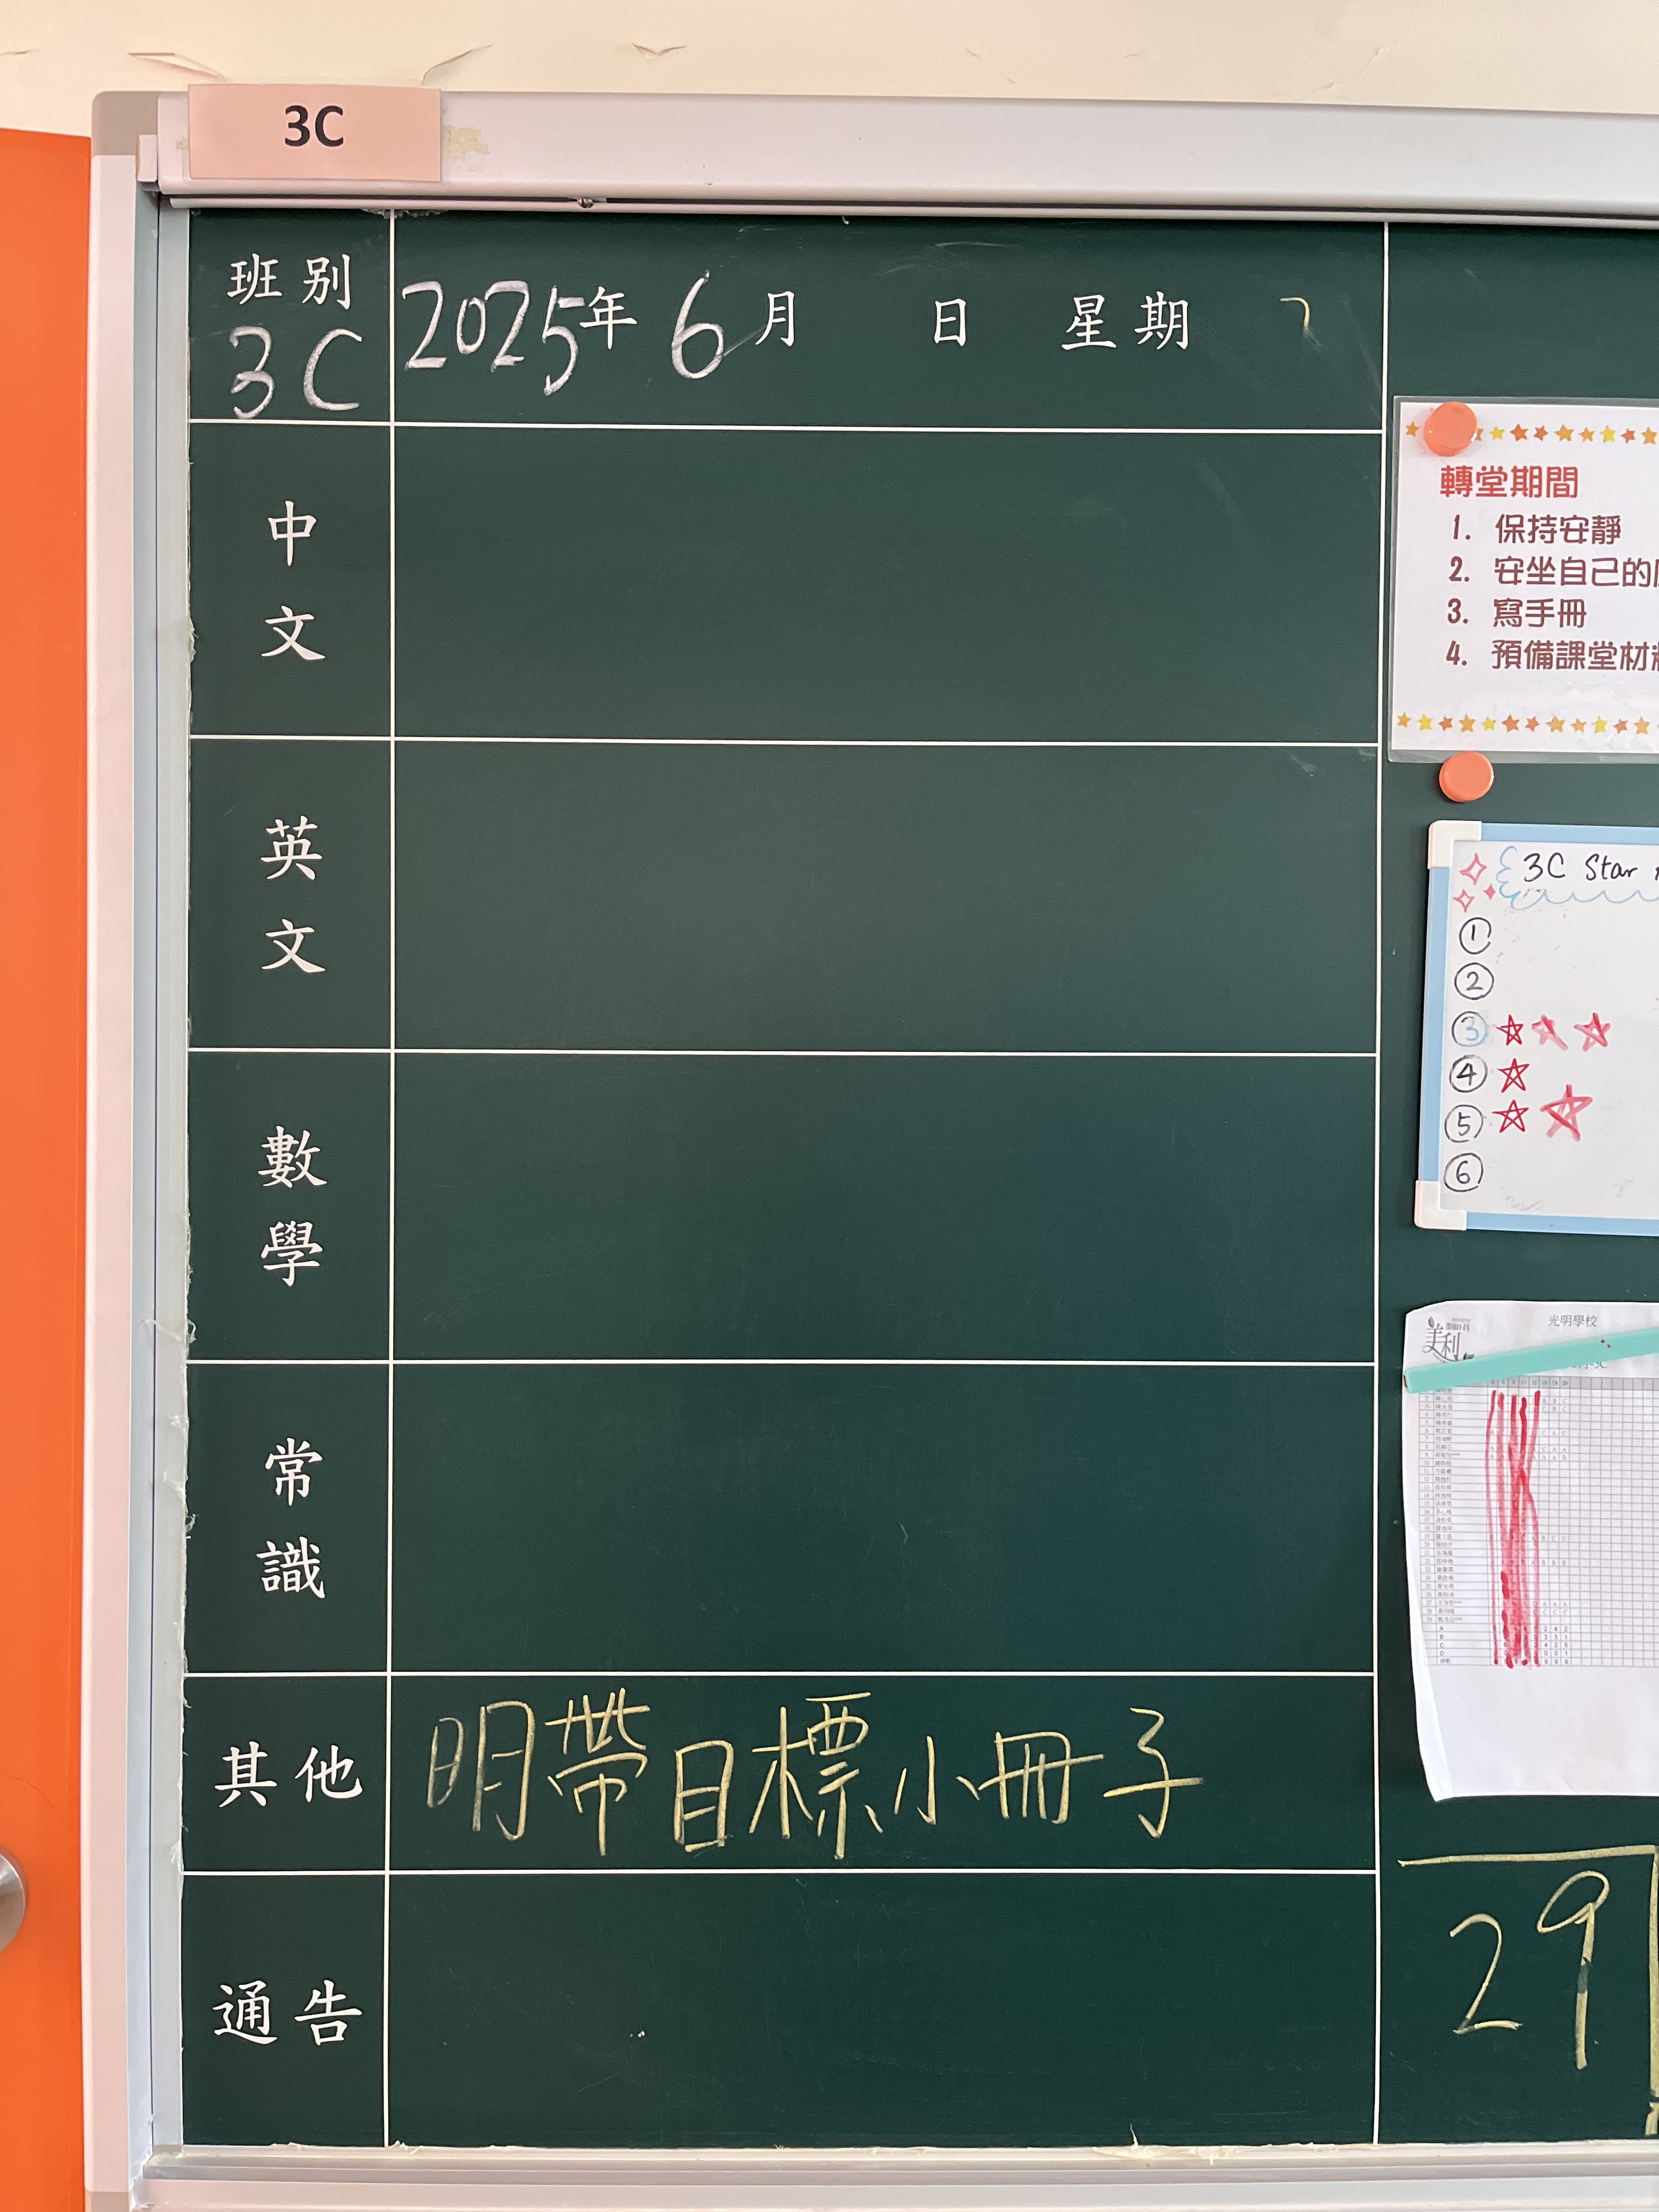 3C
班別
3C
2025年 6月 日 星期
中文
英文
數學
常識
其他
明帶目標小冊子
通告
轉堂期間
1. 保持安靜
2. 安坐自己的
3. 寫手冊
4. 預備課堂材
3C Star
①
②
③
④
⑤
⑥
光明學校
美利
29